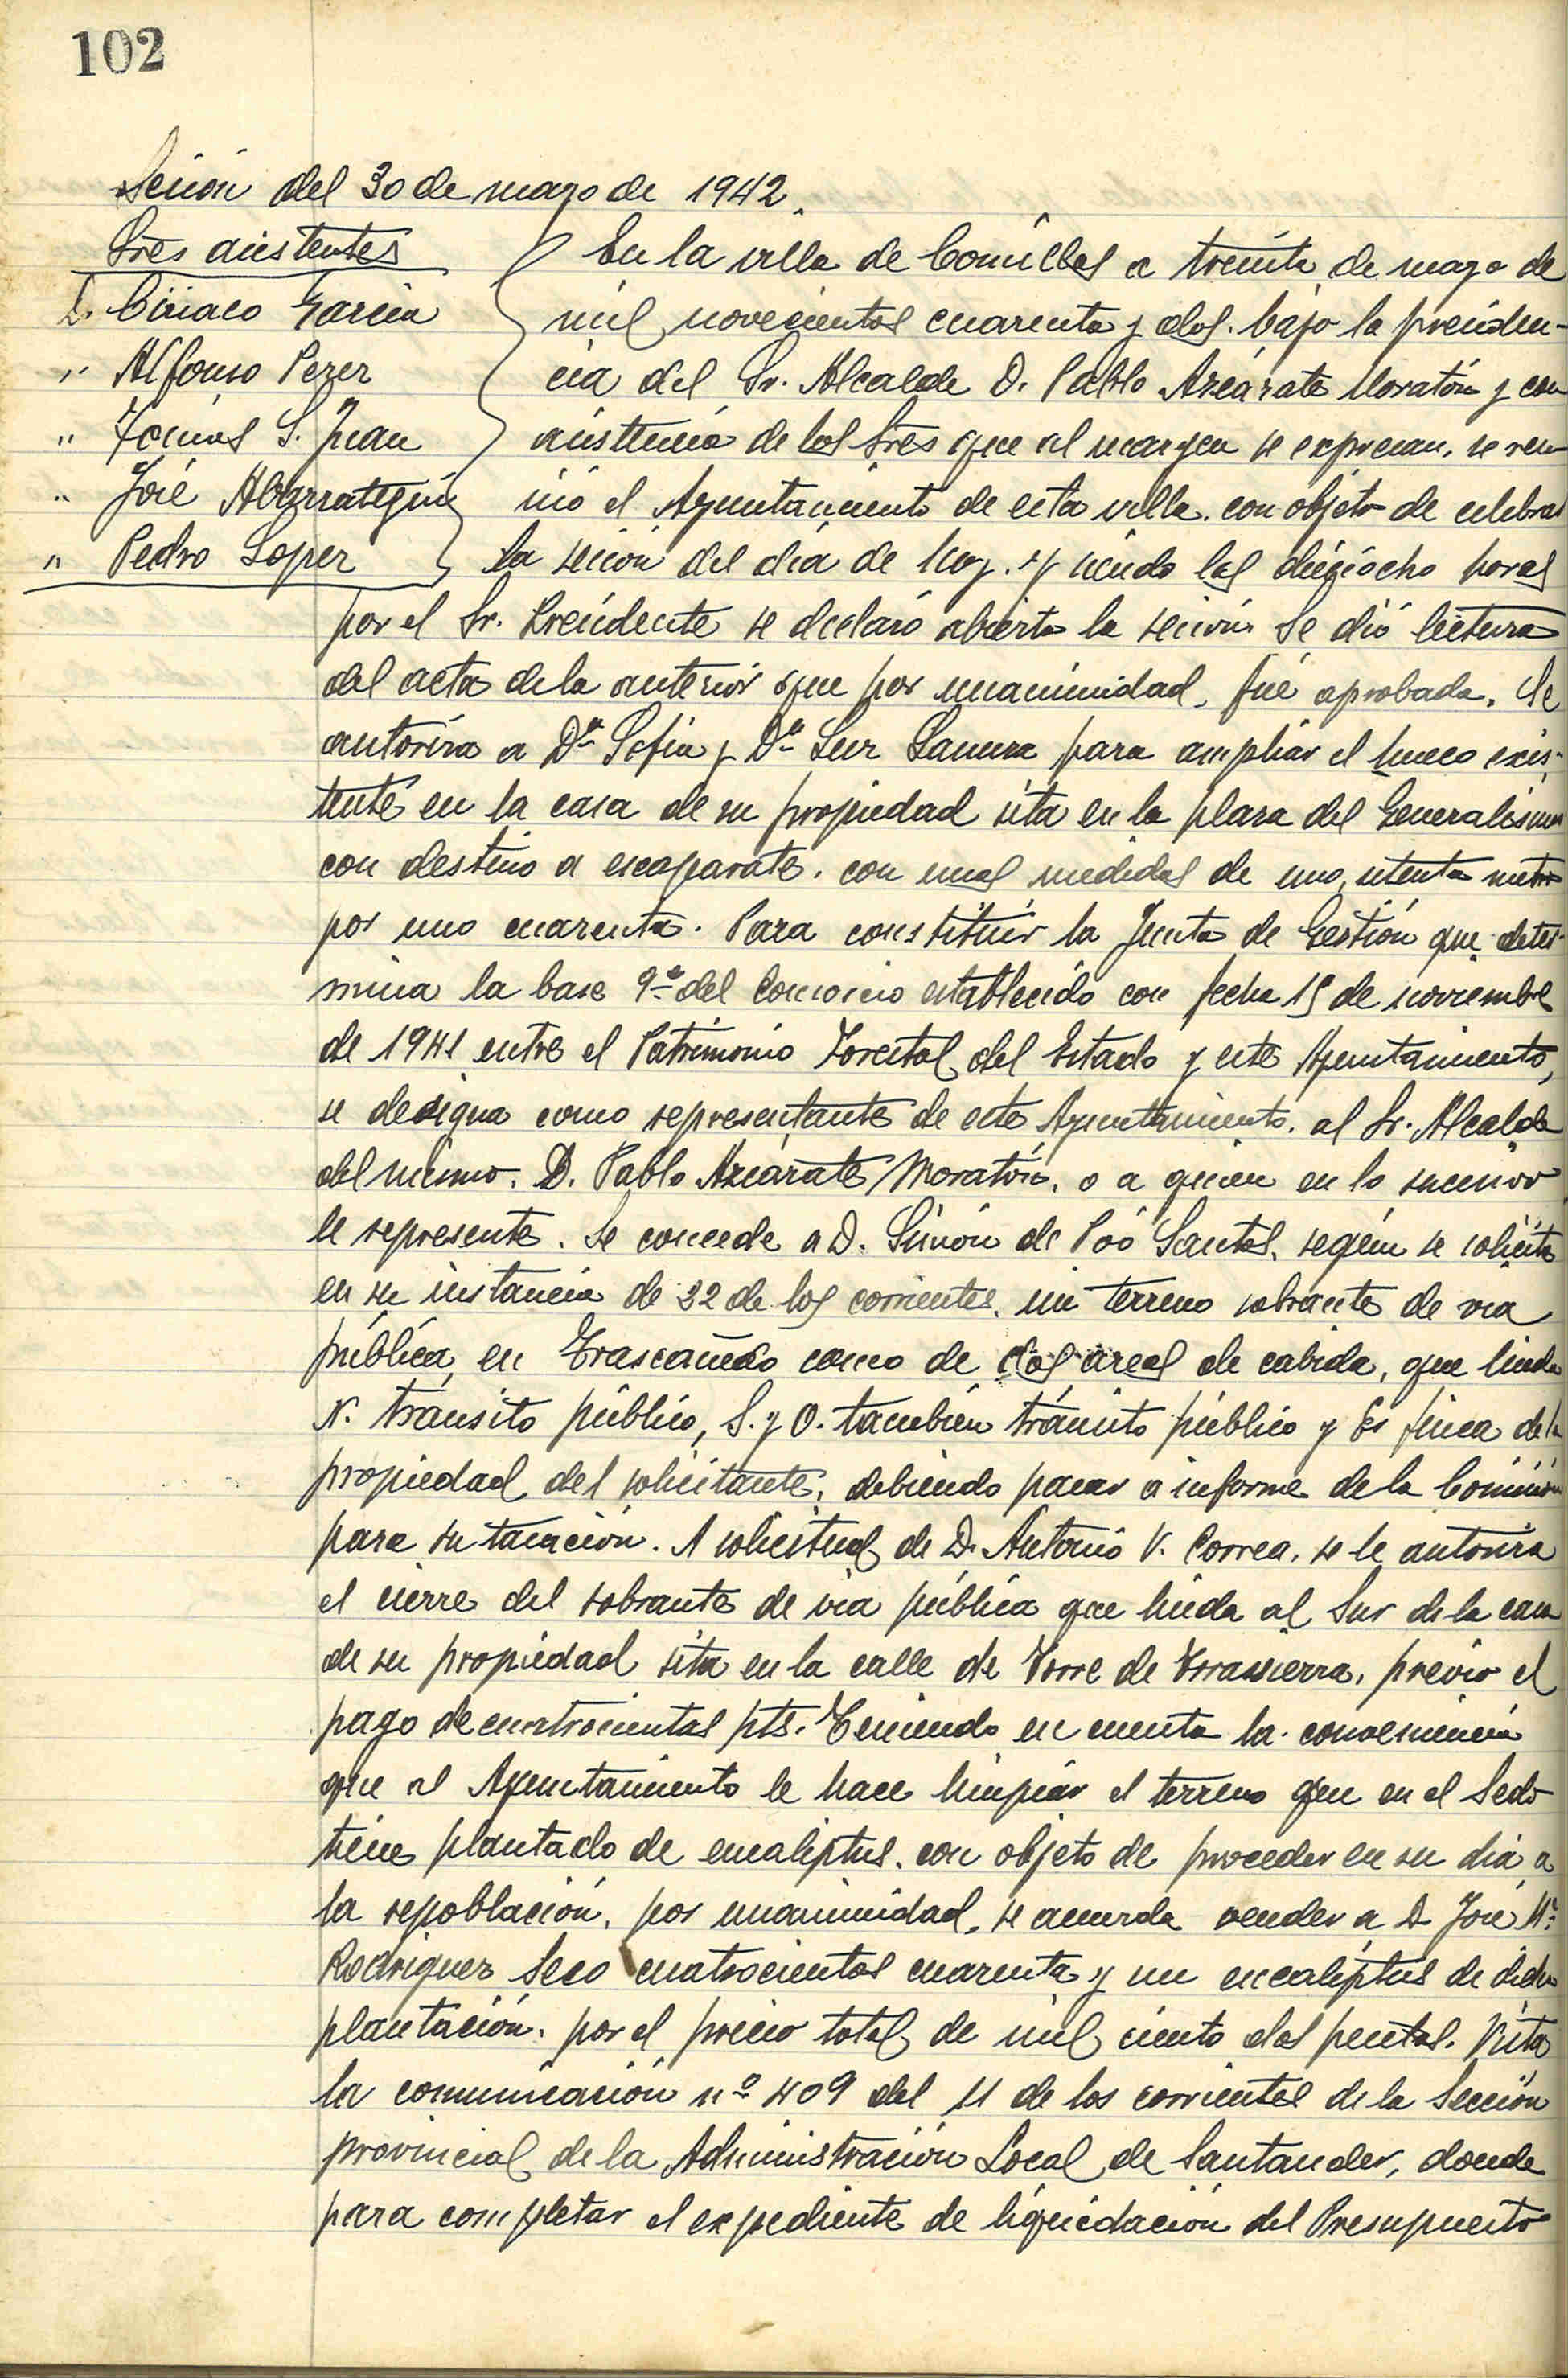 102
Sesión del 30 de mayo de 1942.
Sres asistentes
D. Ciriaco Garcia
" Alfonso Perez
" Tomás S. Juan
" José Abarrategui
" Pedro Lopez
En la villa de Comillas a treinta de mayo de
mil novecientos cuarenta y dos. bajo la presiden-
cia del Sr. Alcalde D. Pablo Azcárate Moratón y con
asistencia de los Sres que al margen se expresan, se reu-
nió el Ayuntamiento de esta villa. con objeto de celebrar
la sesión del día de hoy. y siendo las dieciocho horas
por el Sr. Presidente se declaró abierta la sesión. Se dió lectura
del acta de la anterior que por unanimidad, fué aprobada. Se
autoriza a Dª Sofia y Dª Luz Lamuza para ampliar el hueco exis-
tente en la casa de su propiedad sita en la plaza del Generalísimo
con destino a escaparate. con unas medidas de uno, setenta metros
por uno cuarenta. Para constituir la Junta de Gestión que deter-
mina la base 9ª del Consorcio establecido con fecha 15 de noviembre
de 1941 entre el Patrimonio Forestal del Estado y este Ayuntamiento,
se designa como representante de este Ayuntamiento. al Sr. Alcalde
del mismo. D. Pablo Azcárate Moratón. o a quien en lo sucesivo
le represente. Se concede a D. Simón de Poó Santos, según se solicita
en su instancia de 22 de los corrientes. un terreno sobrante de via
pública, en Trascañedo como de dos áreas de cabida, que linda
N. tránsito público, S. y O. también tránsito público y Es finca de la
propiedad del solicitante, debiendo pasar a informe de la Comisión
para su tasación. A solicitud de D. Antonio V. Correa, se le autoriza
el cierre del sobrante de via pública que linda al Sur de la casa
de su propiedad sita en la calle de Torre de Trassierra, previo el
pago de cuatrocientas pts. Teniendo en cuenta la conveniencia
que al Ayuntamiento le hace limpiar el terreno que en el Sedo
tiene plantado de eucaliptus. con objeto de proceder en su día, a
la repoblación, por unanimidad, se acuerda vender a D. José Mª
Rodriguez Seco cuatrocientos cuarenta y un eucaliptus de dicha
plantación. por el precio total de mil ciento dos pesetas. Vista
la comunicación nº 409 del 11 de los corrientes de la Sección
provincial de la Administración Local de Santander, donde
para completar el expediente de liquidación del Presupuesto